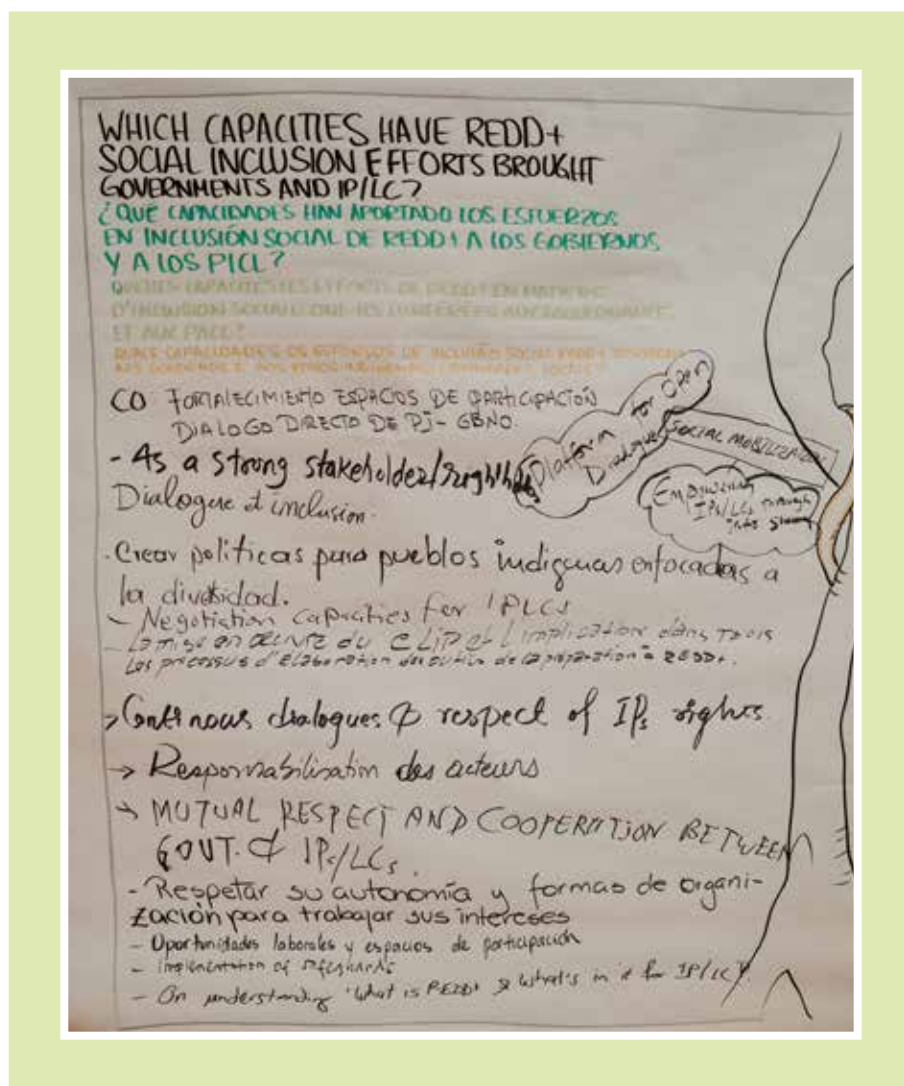 WHICH CAPACITIES HAVE REDD+
SOCIAL INCLUSION EFFORTS BROUGHT
GOVERNMENTS AND IP/LC?
¿QUÉ CAPACIDADES HAN APORTADO LOS ESFUERZOS
EN INCLUSIÓN SOCIAL DE REDD+ A LOS GOBIERNOS
Y A LOS PICL?
D'INCLUSION SOCIALE
ET AUX PACL?
CAPACIDADES OS ESFORÇOS DE INCLUSÃO SOCIAL REDD+
CO FORTALECIMIENTO ESPACIOS DE PARTICIPACIÓN
DIALOGO DIRECTO DE PI - GBNO.
Platform for Open
Dialogue
SOCIAL MOBILIZATION
- As a strong stakeholder/
Empowering
IPs/LCs through
Dialogue et inclusion.
- Crear politicas para pueblos indigenas enfocadas a
la diversidad.
- Negotiation capacities for IPLCs
- La mise en œuvre du CLIP et l'implication dans tous
Les processus d'élaboration des outils de la préparation à REDD+.
> Continous dialogues & respect of IPs rights
→ Responsabilisation des acteurs
→ MUTUAL RESPECT AND COOPERATION BETWEEN
GOVT. & IPs/LCs.
- Respetar su autonomía y formas de organi-
zación para trabajar sus intereses
- Oportunidades laborales y espacios de participación
- Implementation of safeguards
- On understanding 'What is REDD+ & What's in it for IP/LC?